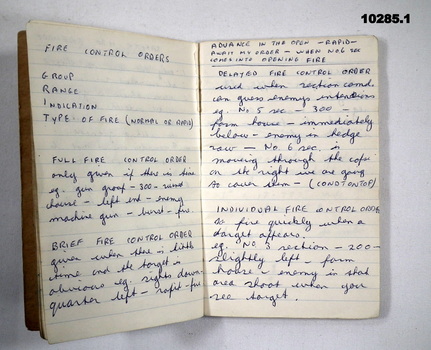 10285.1
FIRE CONTROL ORDERS
GROUP
RANGE
INDICATION
TYPE OF FIRE (NORMAL OR RAPID)
FULL FIRE CONTROL ORDER
only given if there is time
eg. gun group - 300 - 
house - left end - enemy
machine gun - burst - fire
BRIEF FIRE CONTROL ORDER
given when there is little
time and the target is
obvious eg. sights down -
quarter left - rapid - fire
ADVANCE IN THE OPEN - RAPID -
AWAIT MY ORDER - WHEN NO. 6 SEC
COMES INTO OPENING FIRE
DELAYED FIRE CONTROL ORDER
used when section comd.
can guess enemys intentions
eg. No 5 sec - 300 -
farm house - immediately
below - enemy in hedge
row - No. 6 sec. is
moving through the
on the right we are going
to cover them - (
INDIVIDUAL FIRE CONTROL ORDER
to fire quickly when a
target appears.
eg. No 3 section - 200 -
slightly left - farm
house - enemy in that
area shoot when you
see target.